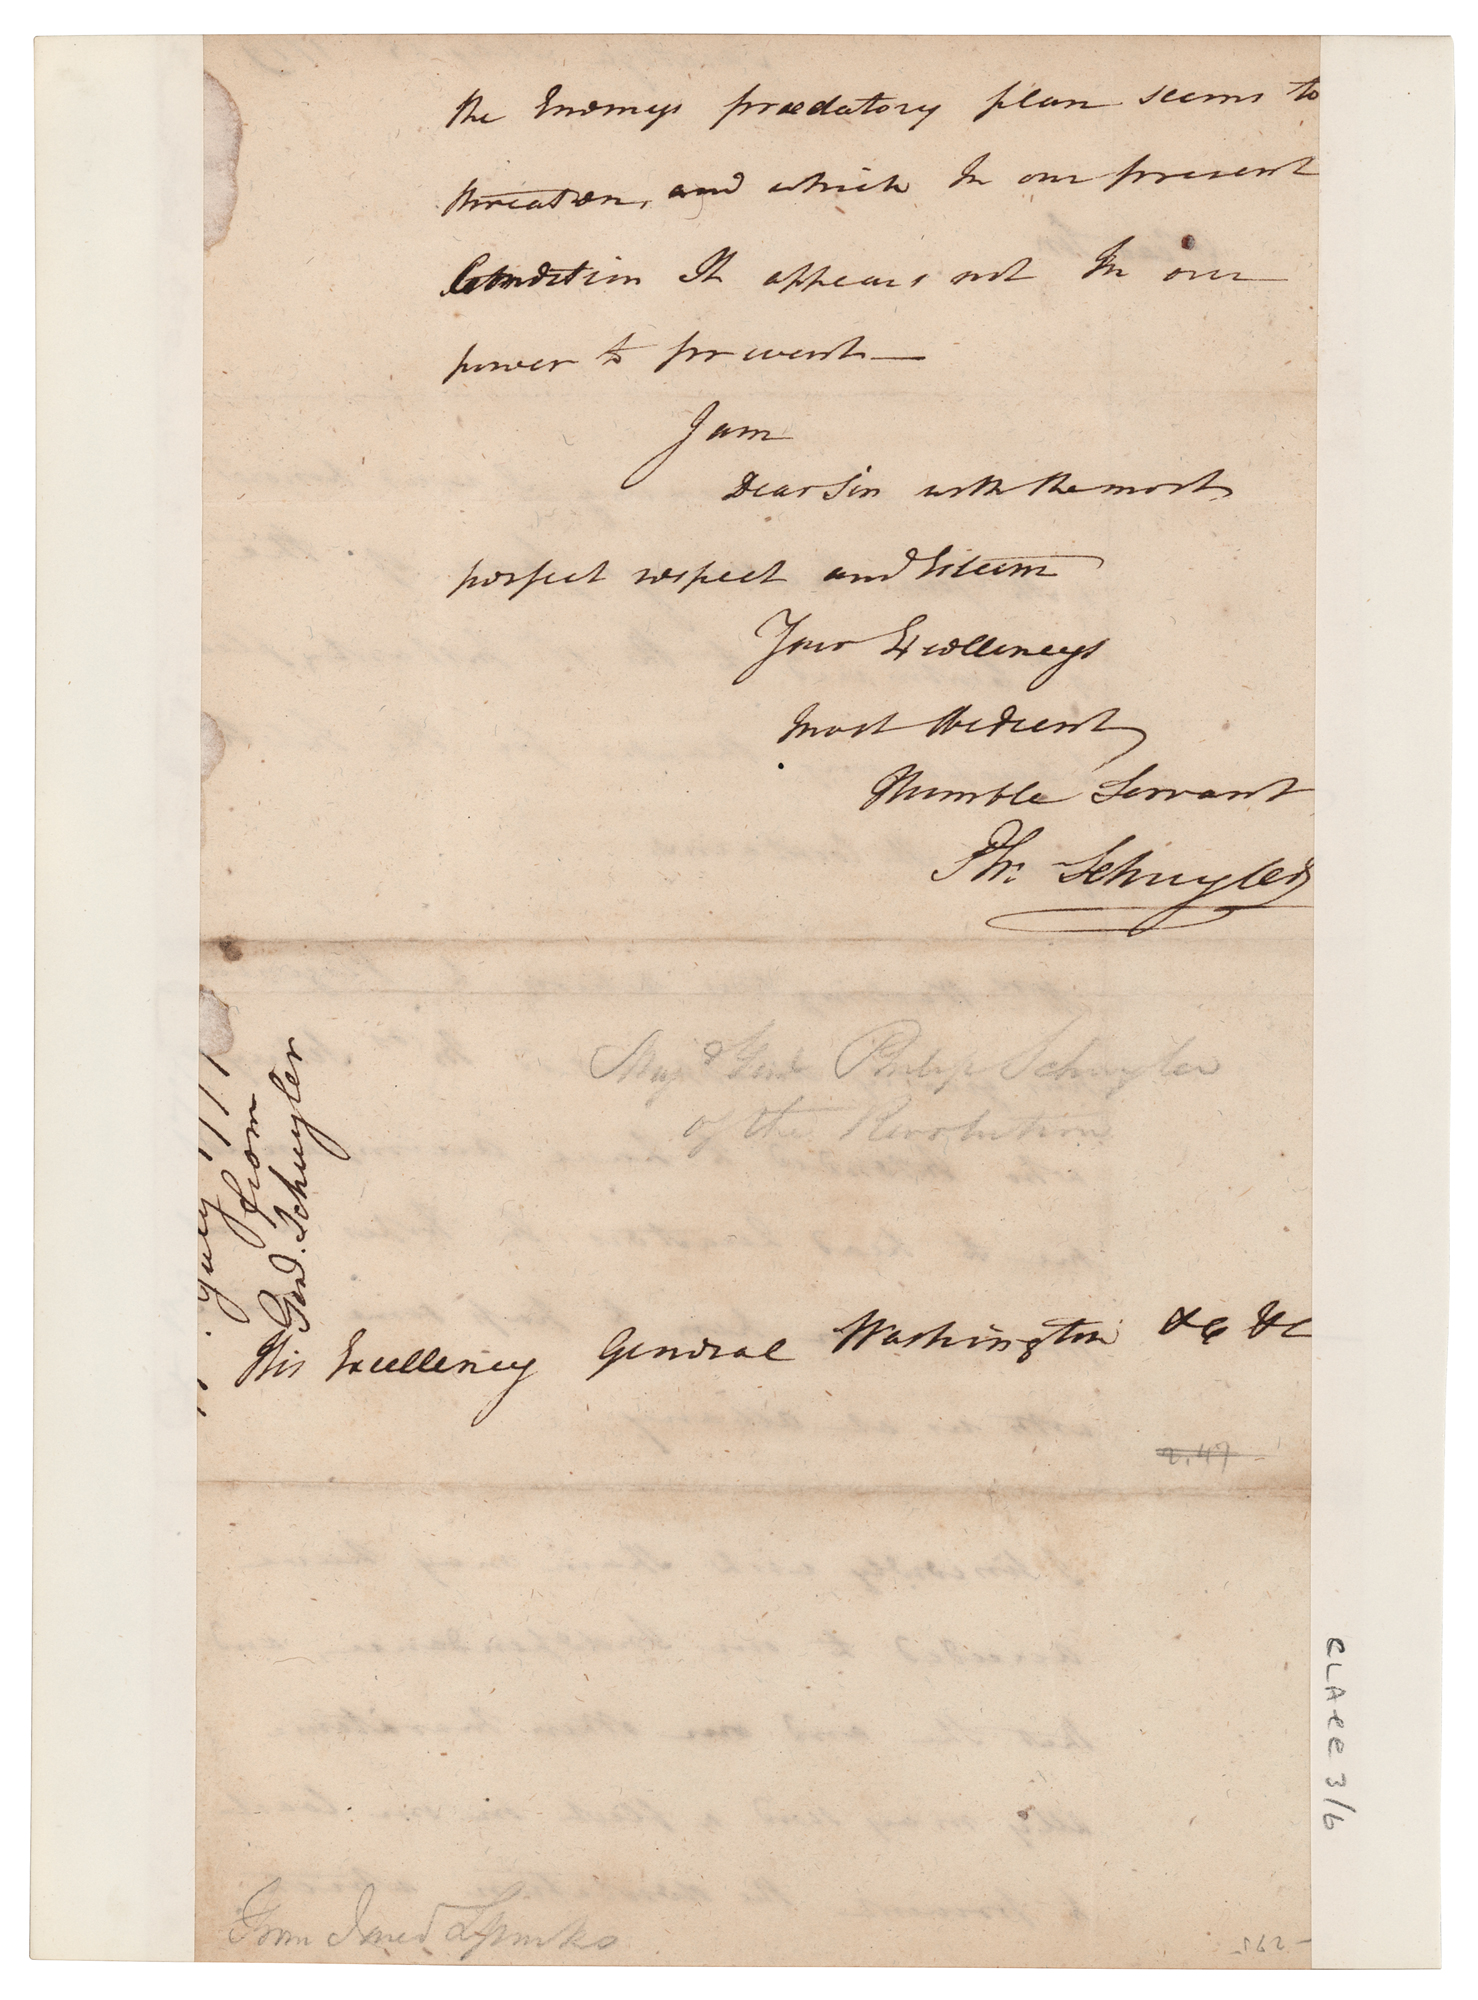 the Enemys prædatory plan seems to
threaten, and which In our present
Condition It appears not In our
power to prevent—
I am
Dear Sir with the most
perfect respect and Esteem
Your Excellencys
most Obedient
Humble Servant
Ph: Schuyler
Maj Genl Philip Schuyler
of the Revolution
July 1777
from
Genl. Schuyler
His Excellency General Washington &c &c
2.47
From Jared Sparks
562-
CLAee 3/6